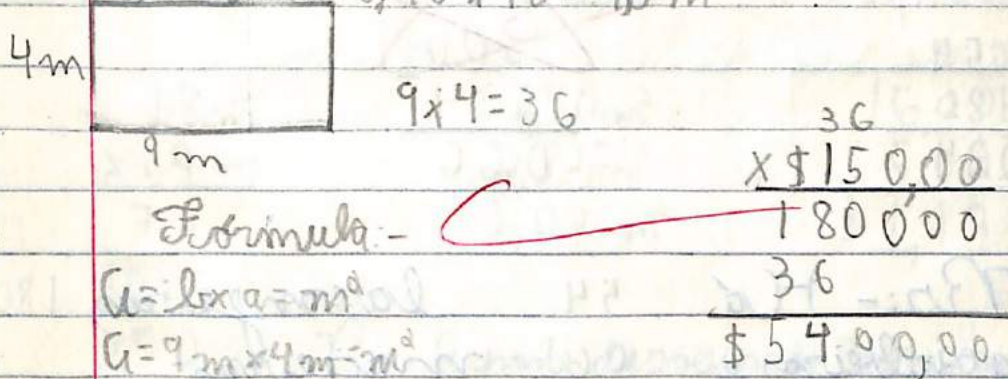 4m
9×4=36
9m
36
×$150,00
180000
36
$5400,00
Fórmula:-
a=b×a=m²
a=9m×4m=m²